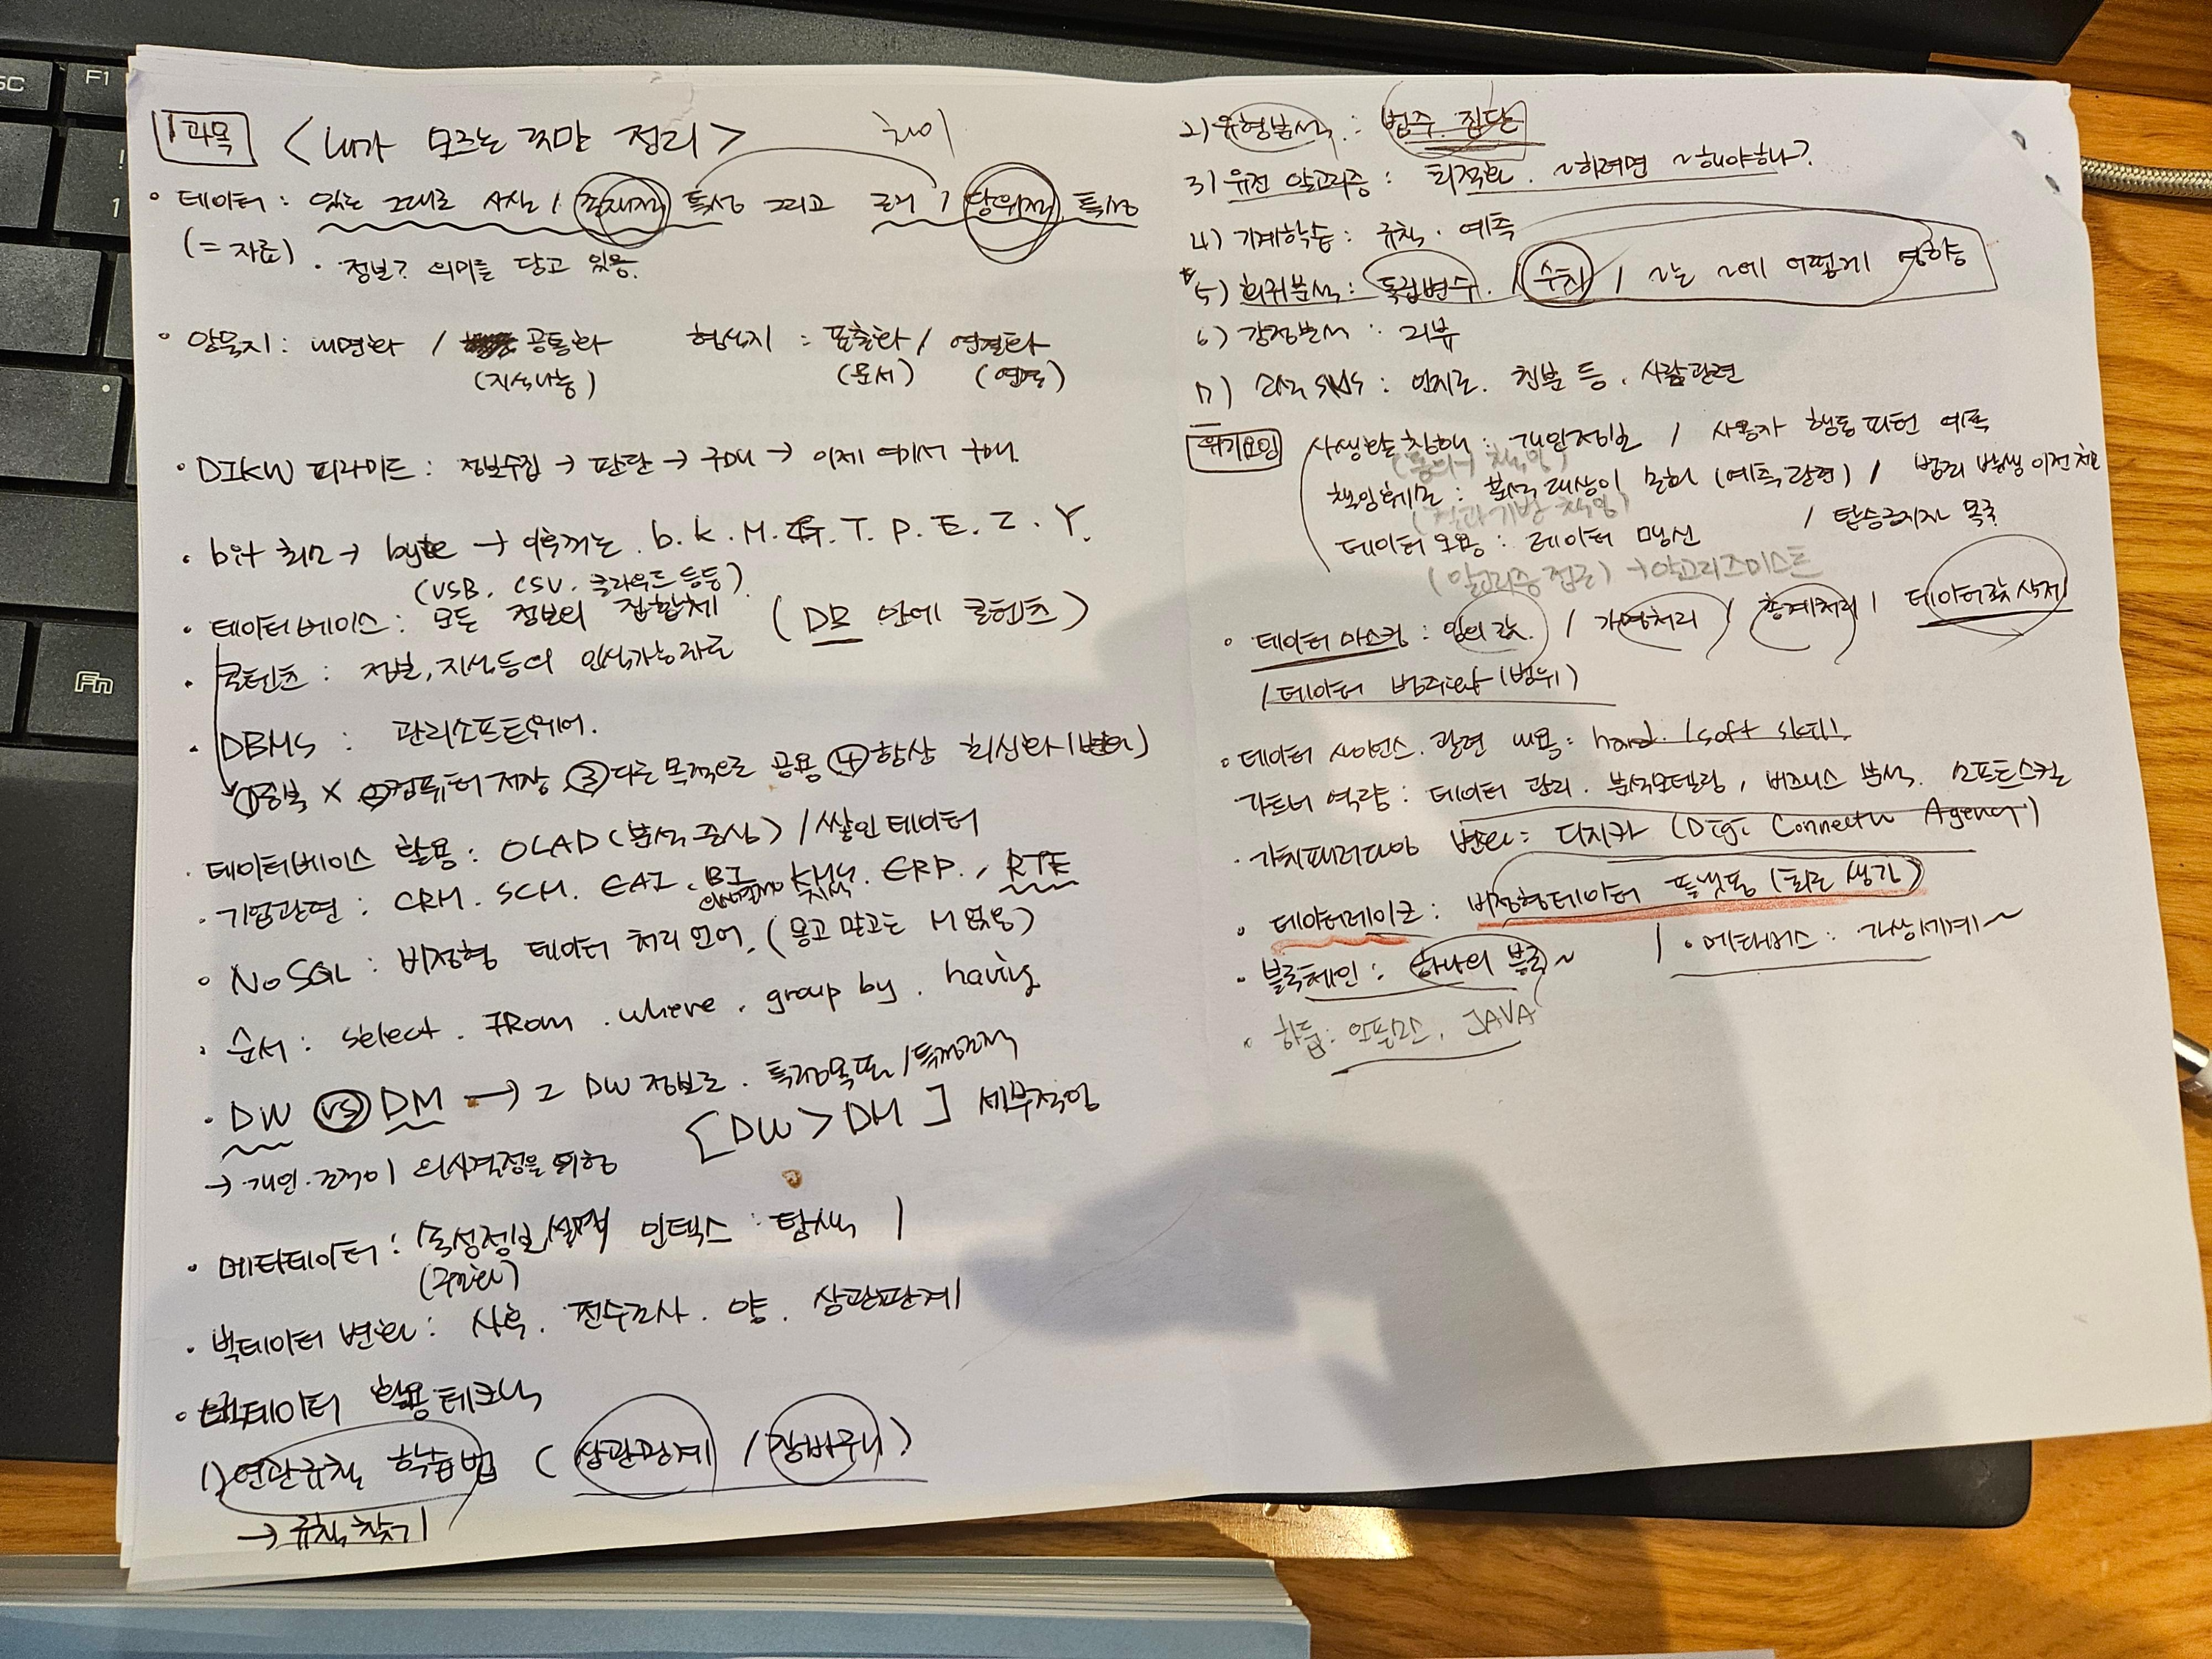 1과목 <내가 모르는 것만 정리>
차이
• 데이터 : 있는 그대로 사실 / 존재적 특성 그리고 근거 / 당위적 특성
(= 자료) · 정보? 의미를 담고 있음.
• 암묵지 : 내면화 / 공통화 형식지 : 표출화 / 연결화
(지식나눔) (문서) (연결)
• DIKW 피라미드 : 정보수집 → 판단 → 구매 → 이제 여기서 구매.
• bit 최소 → byte → 이후꺼는 . b. k. M. G. T. P. E. Z. Y.
(USB, CSV, 클라우드 등등)
• 데이터베이스 : 모든 정보의 집합체 (DB 안에 콘텐츠)
• 콘텐츠 : 정보, 지식등의 인식가능자료
• DBMS : 관리소프트웨어.
①중복 X ②컴퓨터 저장 ③다른 목적으로 공용 ④항상 최신화 (변화)
• 데이터베이스 활용 : OLAD (분석 중심) / 쌓인 데이터
• 기업관련 : CRM. SCM. EAI. BI KMS. ERP., RTE
지식
• NoSQL : 비정형 데이터 처리 언어. (몽고 말고는 M 없음)
• 순서 : select . FRom . where . group by . having
• DW vs DM → 그 DW 정보로 . 특정목표 / 특정조직
[DW > DM] 세부적임
→ 개인·조직이 의사결정을 위함
• 메타데이터 : 속성정보/설명 인덱스 : 탐색 /
(구조화)
• 빅데이터 변화 : 사후. 전수조사. 양. 상관관계
• 빅데이터 활용 테크닉
1) 연관규칙 학습법 (상관관계 / 장바구니)
→ 규칙 찾기
2) 유형분석 : 범주. 집단
3) 유전 알고리즘 : 최적화. ~하려면 ~해야하나?
4) 기계학습 : 규칙 · 예측
* 5) 회귀분석 : 독립변수. / 수치 / ~는 ~에 어떻게 영향
6) 감정분석 : 리뷰
7) 소셜 SNS : 인지도. 친분 등. 사람관련
위기요인 사생활 침해 : 개인정보 / 사용자 행동 패턴 예측
(동의 → 책임)
책임훼손 : 분석 대상이 문제 (예측관련) / 범죄 발생 이전 체포
(결과기반 책임)
데이터 오용 : 데이터 맹신 / 탑승금지자 목록
(알고리즘 접근) → 알고리즈미스트
• 데이터 마스킹 : 임의 값. / 가명처리 / 총계처리 / 데이터값 삭제
/ 데이터 범주화 (범위)
• 데이터 사이언스. 관련 내용 : hard. / soft skill.
가트너 역량 : 데이터 관리. 분석모델링, 비즈니스 분석. 소프트스킬
• 가치패러다임 변화 : 디지카 (Digi Connectu Agency)
• 데이터레이크 : 비정형데이터 플랫폼 (최근 생각)
• 블록체인 : 하나의 블록~ / • 메타버스 : 가상세계~
• 하둡 : 오픈소스, JAVA
SC
F1
!
1
Fn